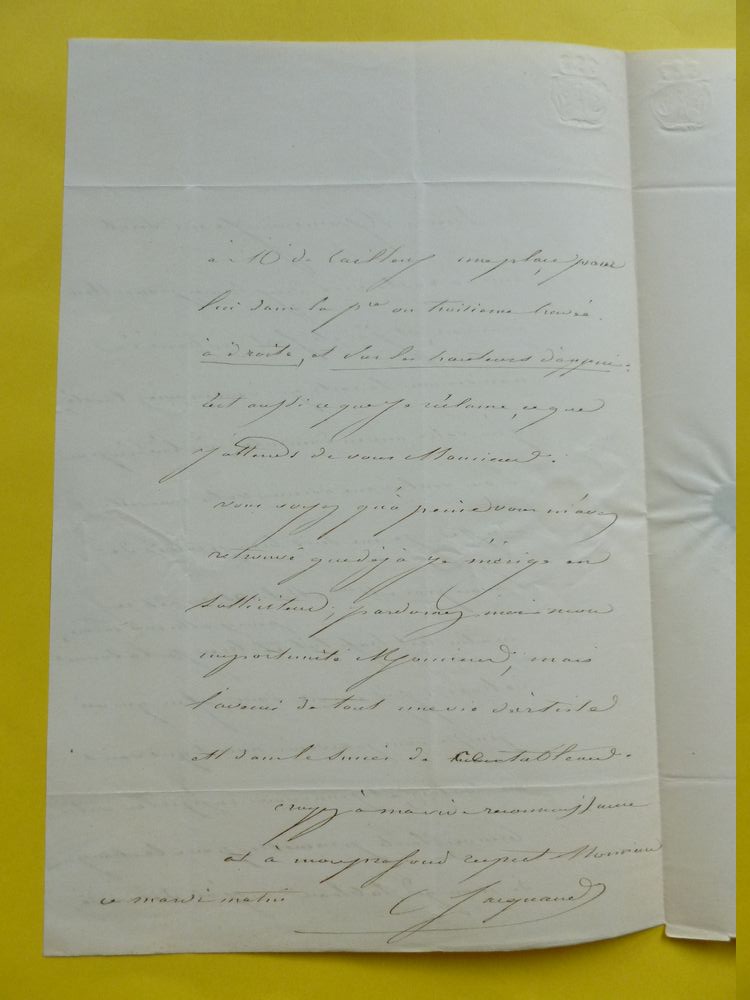 à Mr de Cailleux une place pour
lui dans la pre ou troisième travée
à droite, et sur les hauteurs d'appui.
C'est aussi ce que je réclame, ce que
j'attends de vous Monsieur.
vous voyez qu'à peine vous m'avez
retrouvé que déjà je m'érige en
solliciteur, pardonnez moi mon
importunité Monsieur, mais
l'avenir de tout une vie d'artiste
est dans le succès de tableau.
croyez à ma vive reconnaissance
et à mon profond respect Monsieur
ce mardi matin C Jacquand